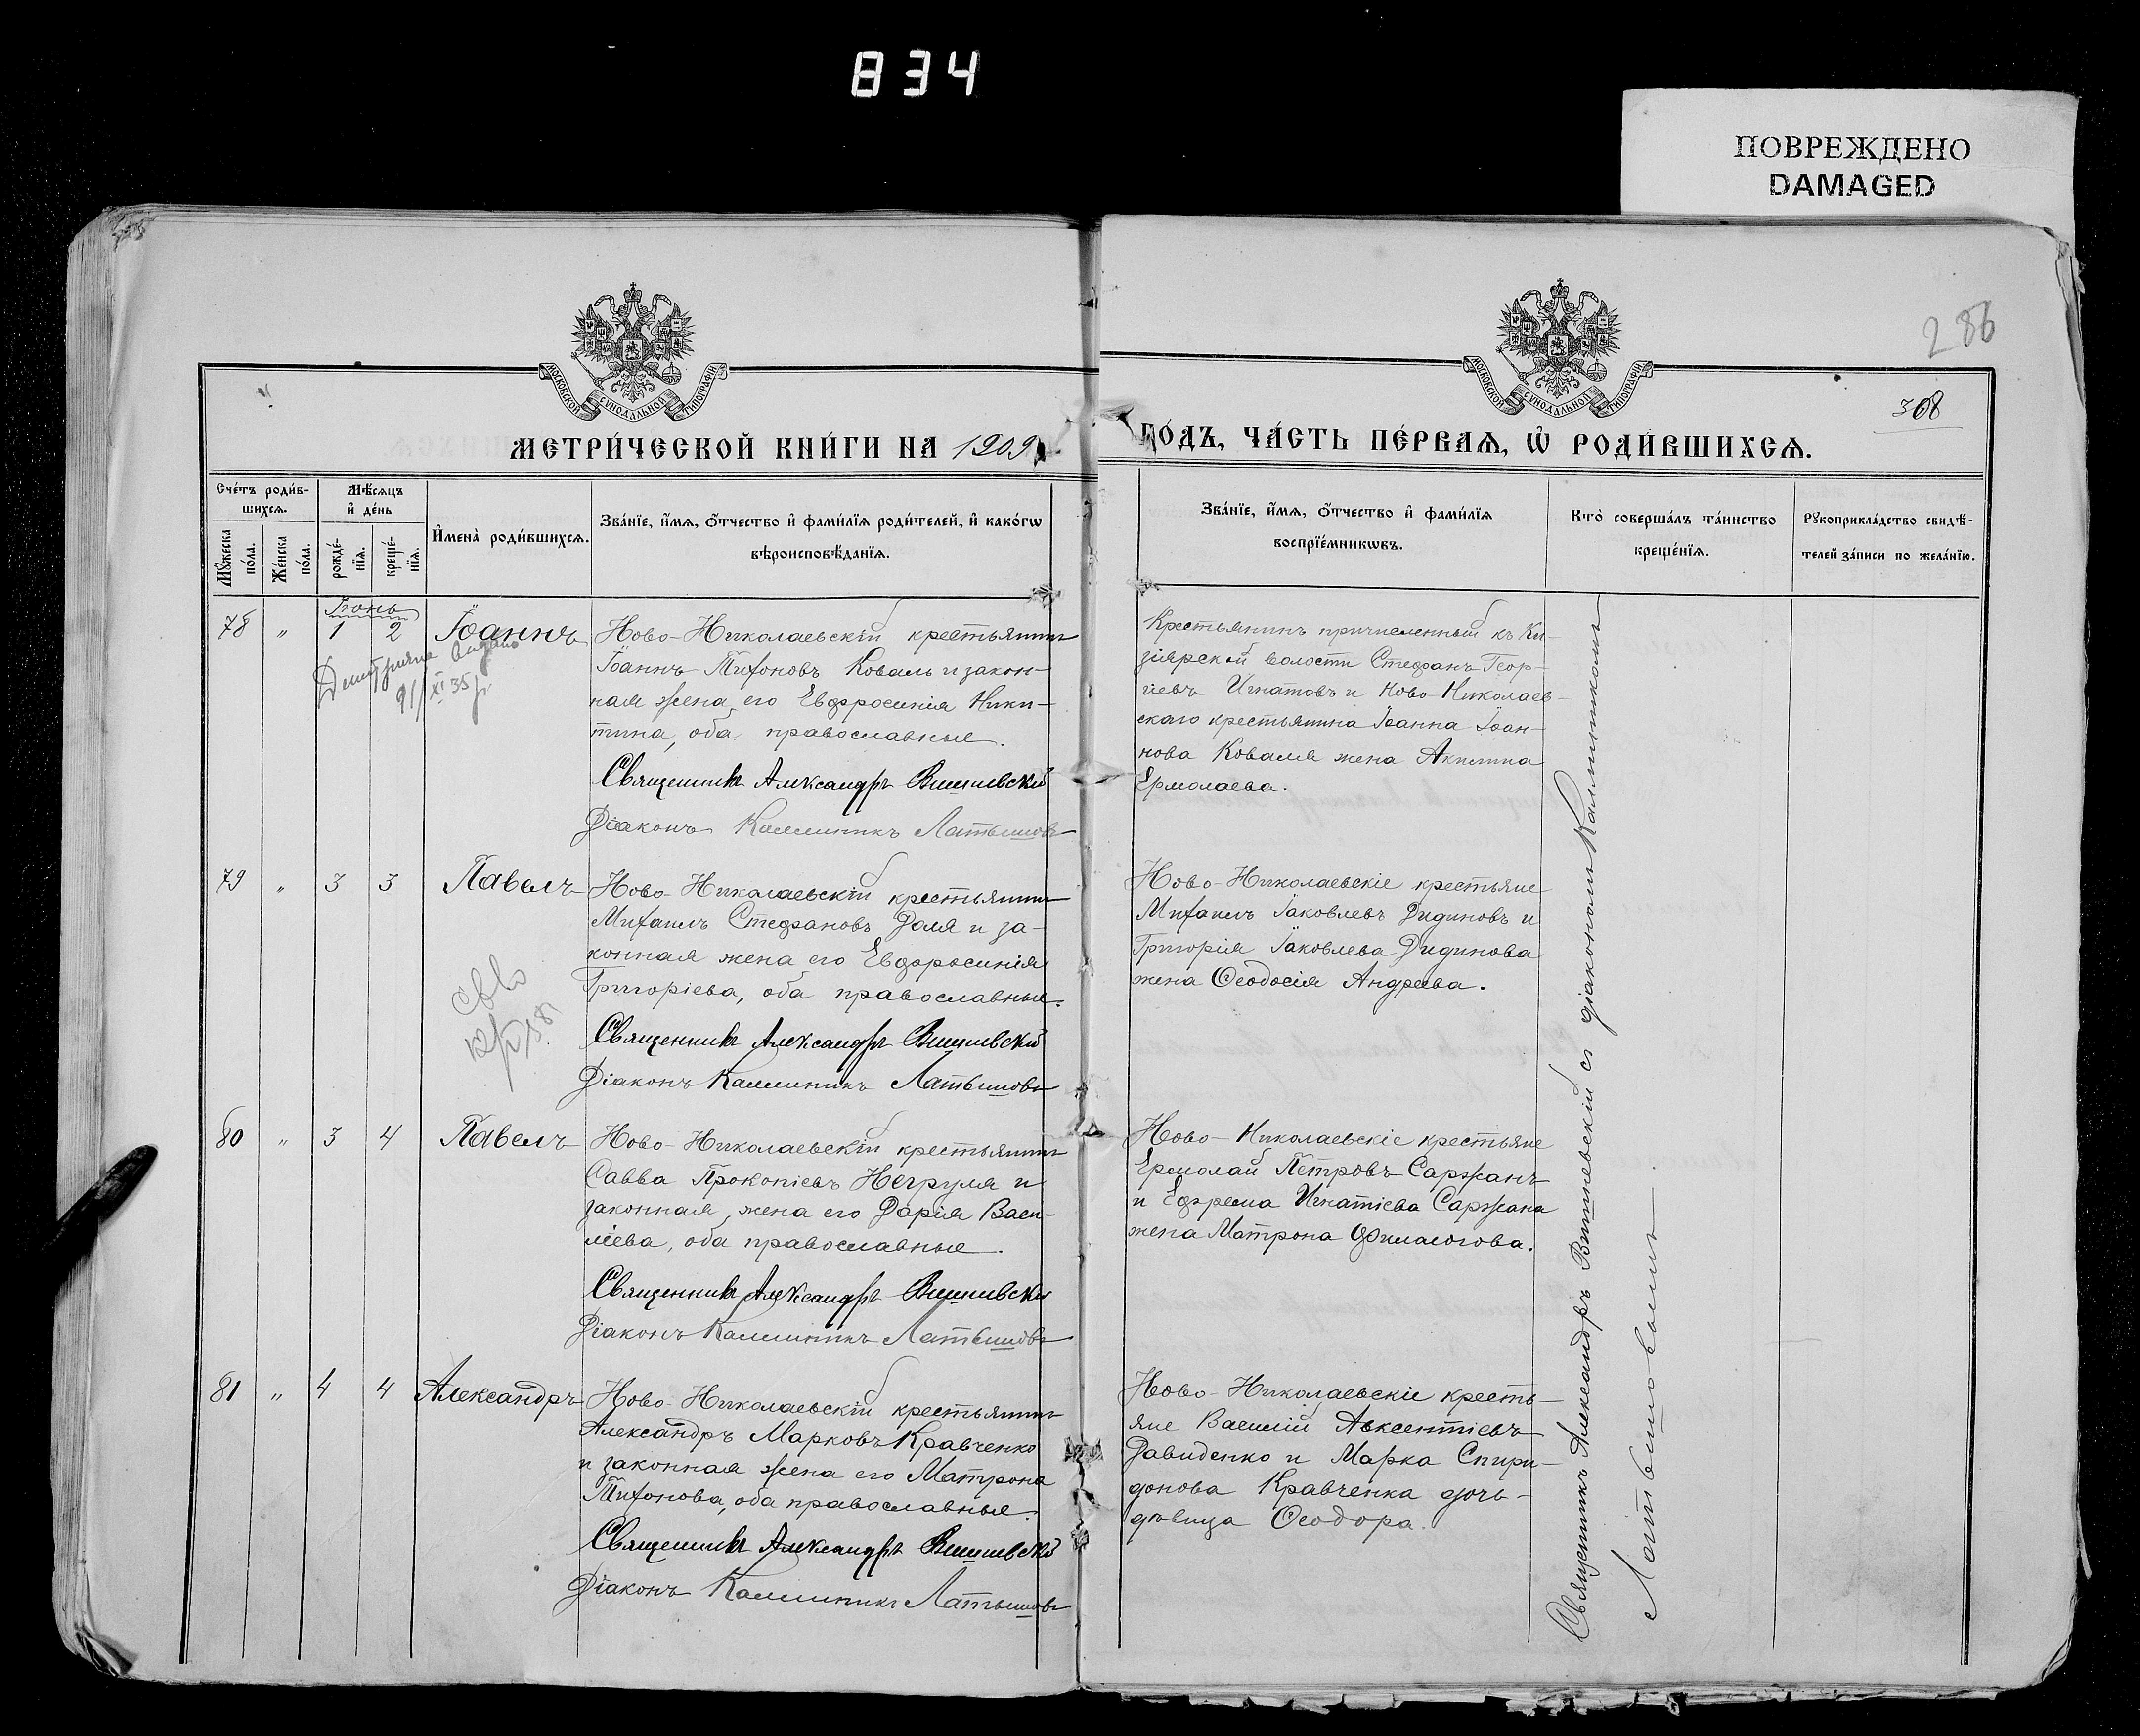 834
ПОВРЕЖДЕНО
DAMAGED
286
368
МОСКОВСКОЙ СѴНОДАЛЬНОЙ ТИПОГРАФІИ
МОСКОВСКОЙ СѴНОДАЛЬНОЙ ТИПОГРАФІИ
МЕТРИ́ЧЕСКОЙ КНИ́ГИ НА 1909
ГО́ДЪ, ЧА́СТЬ ПЕ́РВАѦ, Ѡ҆ РОДИ́ВШИХСѦ.
Сче́тъ роди́в-
шихсѧ.
Мꙋ́жеска по́ла.
Же́нска по́ла.
Мѣ́сѧцъ
и҆ де́нь
рожде́-
нїѧ.
креще́-
нїѧ.
И҆мена̀ роди́вшихсѧ.
Зва́нїе, и҆́мѧ, ѻ҆́тчество и҆ фами́лїѧ роди́телей, и҆ како́гѡ
вѣроисповѣ́данїѧ.
Зва́нїе, и҆́мѧ, ѻ҆́тчество и҆ фами́лїѧ
воспрїе́мникѡвъ.
Кто̀ соверша́лъ та́инство
креще́нїѧ.
Рꙋкоприкла́дство свидѣ́-
телей за́писи по жела́нїю.
Іюнь
78 " 1 2 Іоаннъ
Ново-Николаевскій крестьянинъ
Іоаннъ Тихоновъ Коваль и закон-
ная жена его Евфросинія Ники-
тина, оба православные.
Священникъ Александръ Вишневскій
Діаконъ Каллиникъ Латышовъ
Крестьянинъ причисленный къ Ки-
зіярской волости Стефанъ Геор-
гіевъ Игнатовъ и Ново-Николаев-
скаго крестьянина Іоанна Іоан-
нова Коваля жена Акилина
Ермолаева.
79 " 3 3 Павелъ
Ново-Николаевскій крестьянинъ
Михаилъ Стефановъ Доля и за-
конная жена его Евфросинія
Григоріева, оба православные.
Священникъ Александръ Вишневскій
Діаконъ Каллиникъ Латышовъ
Ново-Николаевскіе крестьяне
Михаилъ Іаковлевъ Дидиновъ и
Григорія Іаковлева Дидинова
жена Ѳеодосія Андреева.
80 " 3 4 Павелъ
Ново-Николаевскій крестьянинъ
Савва Прокопіевъ Негруля и
законная жена его Дарія Васи-
ліева, оба православные.
Священникъ Александръ Вишневскій
Діаконъ Каллиникъ Латышовъ
Ново-Николаевскіе крестьяне
Ермолай Петровъ Саржанъ
и Ефрема Игнатіева Саржана
жена Матрона Филаогова.
81 " 4 4 Александръ
Ново-Николаевскій крестьянинъ
Александръ Марковъ Кравченко
и законная жена его Матрона
Тихонова, оба православные.
Священникъ Александръ Вишневскій
Діаконъ Каллиникъ Латышовъ
Ново-Николаевскіе кресть-
яне Василій Авксентіевъ
Давиденко и Марка Спири-
донова Кравченка дочь-
дѣвица Ѳеодора.
Священникъ Александръ Вишневскій съ діакономъ Каллиникомъ
Латышовымъ